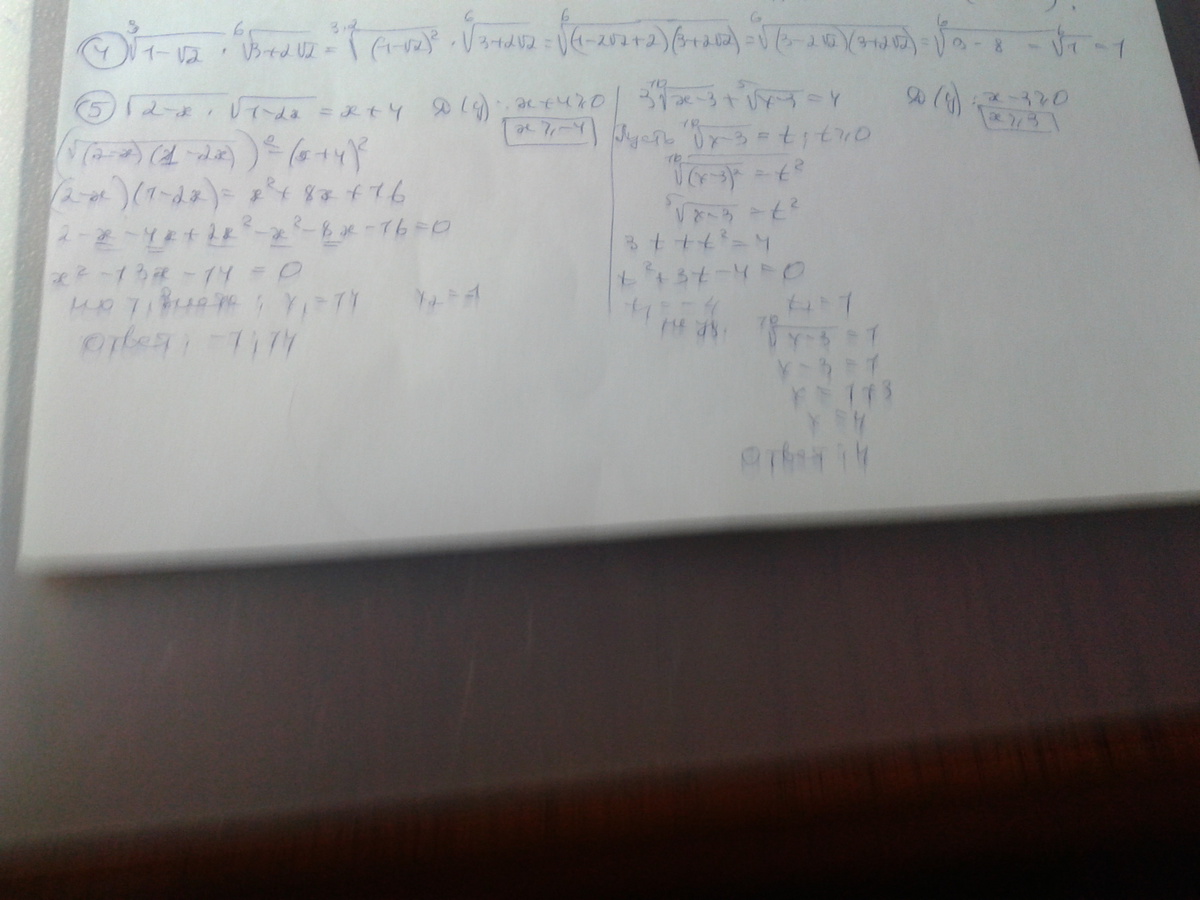 ④ ∛(1-√2) · ⁶√(3+2√2) = ³·²√((1-√2)²) · ⁶√(3+2√2) = ⁶√((1-2√2+2)(3+2√2)) = ⁶√((3-2√2)(3+2√2)) = ⁶√(9-8) = ⁶√1 = 1
⑤ √(2-x) · √(1-2x) = x+4 D(y): x+4≥0
x≥-4
(√((2-x)(1-2x)))² = (x+4)²
(2-x)(1-2x) = x²+8x+16
2-x-4x+2x²-x²-8x-16=0
x²-13x-14=0
x₁=14 x₂=-1
Ответ: -1; 14
3¹⁰√(x-3) + ⁵√(x-3) = 4 D(y): x-3≥0
x≥3
Пусть ¹⁰√(x-3) = t, t≥0
¹⁰√((x-3)²) = t²
⁵√(x-3) = t²
3t+t²=4
t²+3t-4=0
t₁=-4 t₂=1
¹⁰√(x-3) = 1
x-3=1
x=1+3
x=4
Ответ: 4